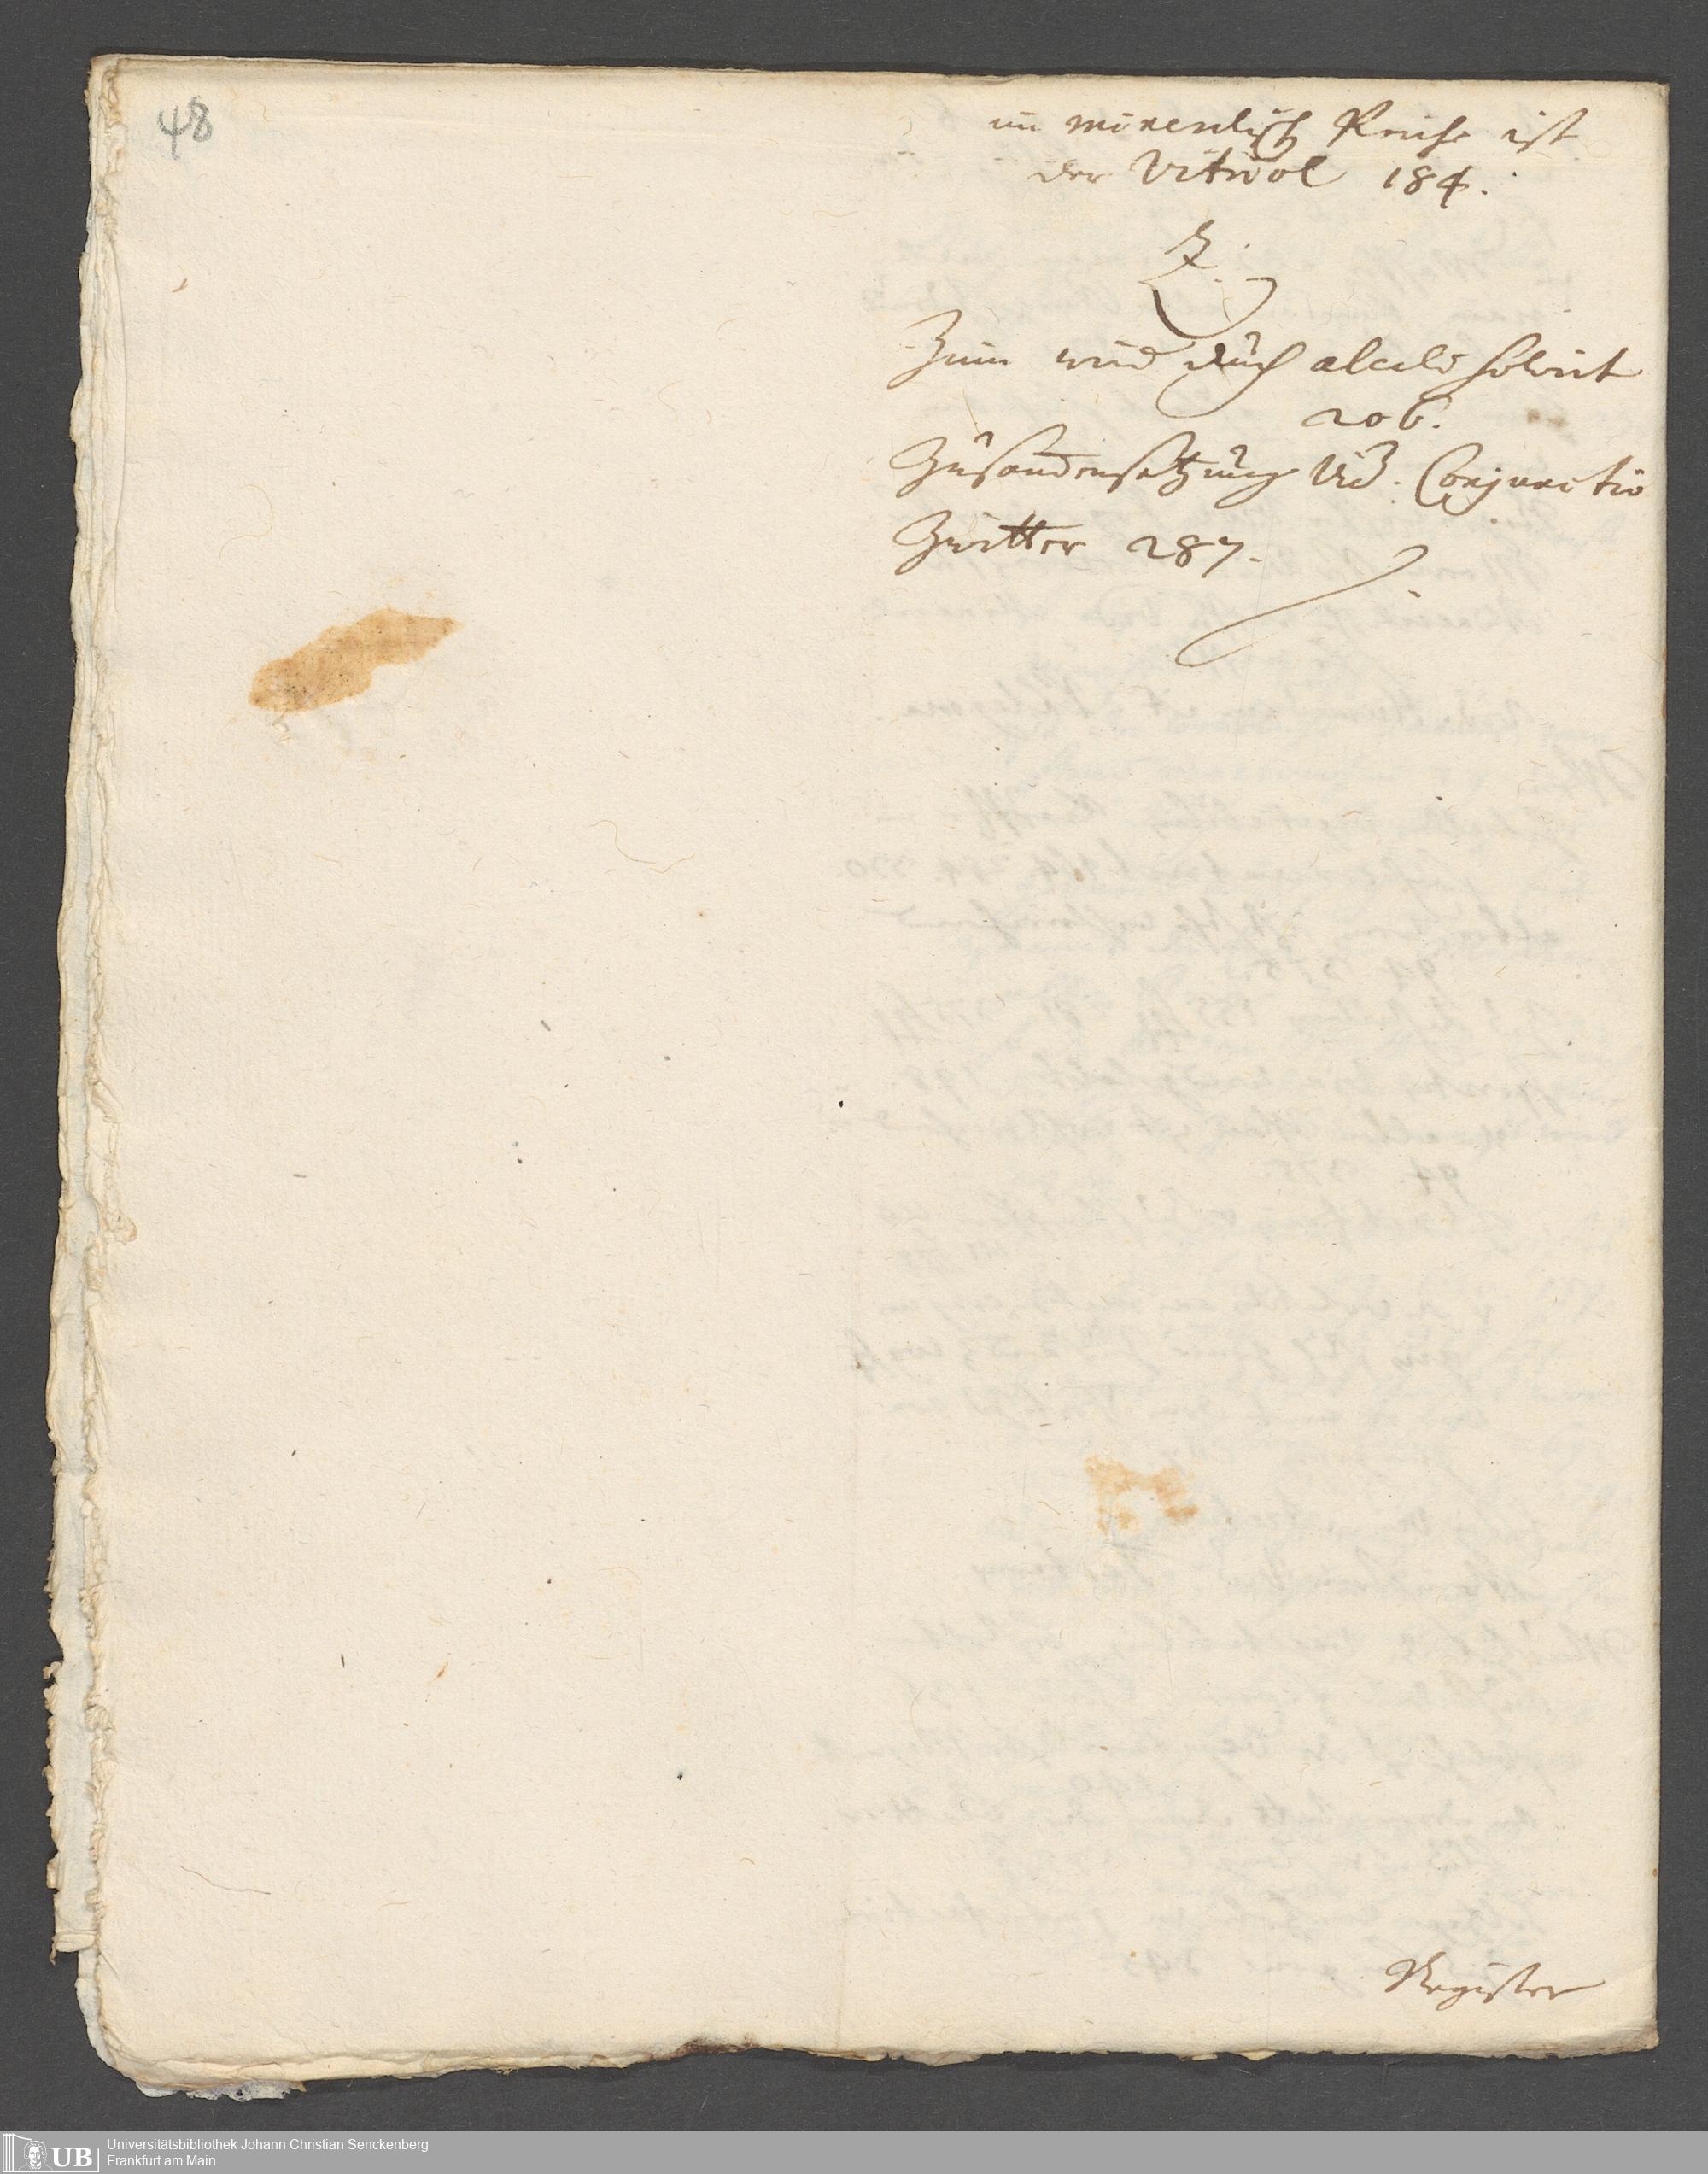 48
im minerılisch Reiche ist
der Vitriol 184.
Z.
Zinn wird durch alcali solvirt
206.
Zusam̄ensetzung Vid. Conjunctio
Zwitter 287.
Register
UB
Universitätsbibliothek Johann Christian Senckenberg
Frankfurt am Main